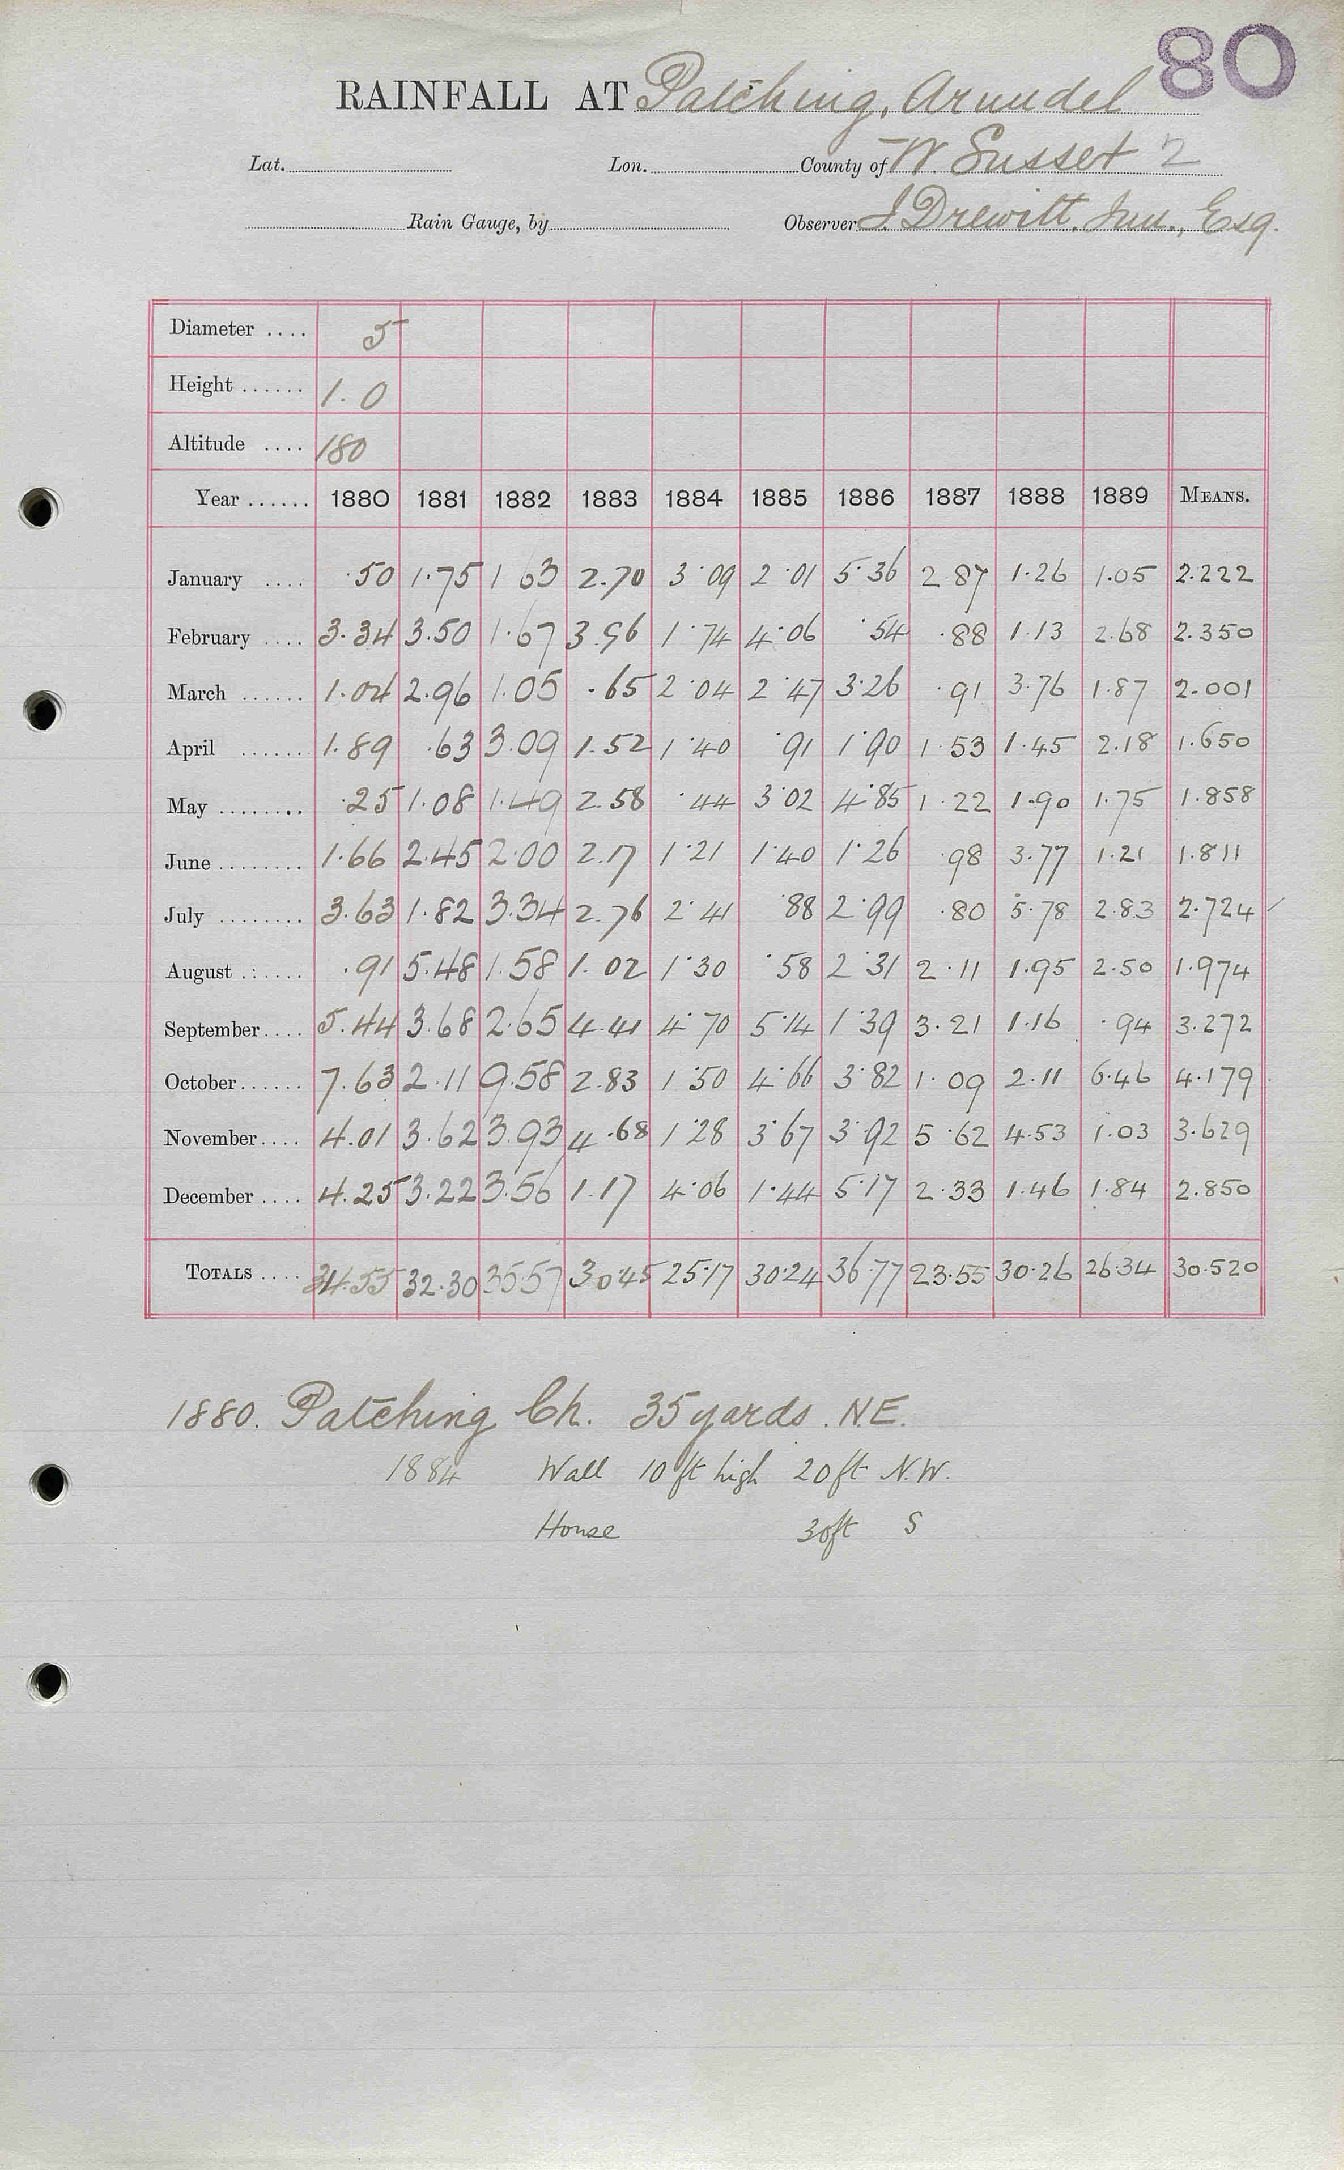 80
RAINFALL AT Patching, Arundel
Lat. Lon. County of W. Sussex 2
Rain Gauge, by Observer J. Drewitt, Jun., Esq.
Diameter .... 5
Height ...... 1.0
Altitude .... 180
Year ...... 1880 1881 1882 1883 1884 1885 1886 1887 1888 1889 MEANS.
January .... .50 1.75 1 63 2.70 3.09 2.01 5.36 2 87 1.26 1.05 2.222
February .... 3.34 3.50 1.67 3.96 1.74 4.06 .54 .88 1.13 2.68 2.350
March ...... 1.04 2.96 1.05 .65 2.04 2.47 3.26 .91 3.76 1.87 2.001
April ...... 1.89 .63 3.09 1.52 1.40 .91 1.90 1.53 1.45 2.18 1.650
May ........ .25 1.08 1.49 2.58 .44 3.02 4.85 1.22 1.90 1.75 1.858
June ........ 1.66 2.45 2.00 2.17 1.21 1.40 1.26 .98 3.77 1.21 1.811
July ........ 3.63 1.82 3.34 2.76 2.41 .88 2.99 .80 5.78 2.83 2.724
August ...... .91 5.48 1.58 1.02 1.30 .58 2.31 2.11 1.95 2.50 1.974
September .... 5.44 3.68 2.65 4.41 4.70 5.14 1.39 3.21 1.16 .94 3.272
October ...... 7.63 2.11 9.58 2.83 1.50 4.66 3.82 1.09 2.11 6.46 4.179
November .... 4.01 3.62 3.93 4.68 1.28 3.67 3.92 5.62 4.53 1.03 3.629
December .... 4.25 3.22 3.56 1.17 4.06 1.44 5.17 2.33 1.46 1.84 2.850
TOTALS .... 34.55 32.30 35.57 30.45 25.17 30.24 36.77 23.55 30.26 26.34 30.520
1880. Patching Ch. 35 yards. NE.
1884 Wall 10 ft high 20 ft N.W.
House 30ft S